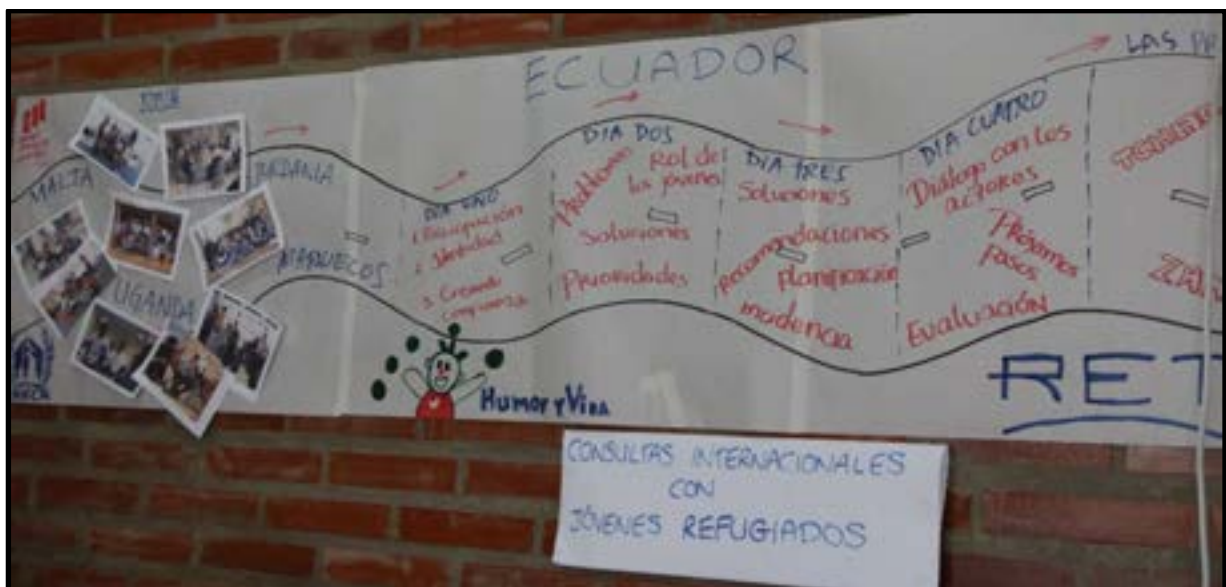 ECUADOR
LAS
MALTA
JORDANIA
MARRUECOS
UGANDA
DIA UNO
1. Participación
2. Identidad
3. Creando
confianza
DIA DOS
Problemas
Rol de
los jóvenes
Soluciones
Prioridades
DIA TRES
Soluciones
Recomendaciones
planificación
incidencia
DIA CUATRO
Diálogo con los
actores
Próximos
pasos
Evaluación
HUMOR Y VIDA
RET
CONSULTAS INTERNACIONALES
CON
JÓVENES REFUGIADOS